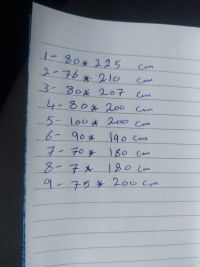 1- 80* 225 cm
2- 76 * 210 cm
3- 80 * 207 cm
4- 80 * 200 cm
5- 100 * 200 cm
6- 90 * 190 cm
7- 70 * 180 cm
8- 7 * 180 cm
9- 75 * 200 cm